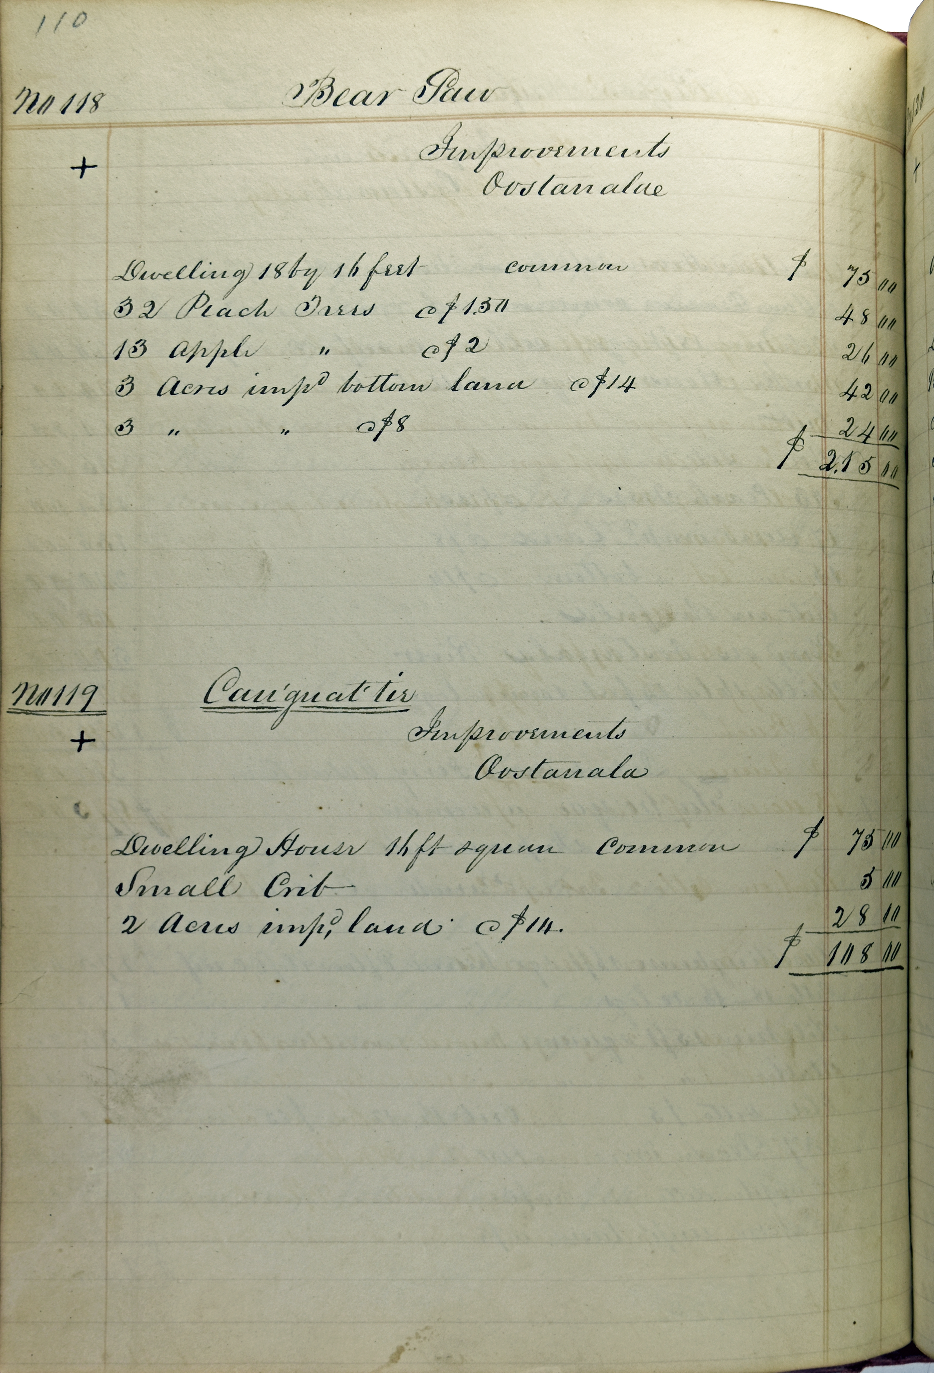 110
No 118 Bear Paw
+ Improvements
Oostanalae
Dwelling 18 by 16 feet common $ 75 00
32 Peach Trees @ $1.50 48 00
13 Apple " @ $2 26 00
3 Acres imp^d bottom land @ $14 42 00
3 " " @ $8 24 00
$ 215 00
No 119 Cau'guat'tie
+ Improvements
Oostanala
Dwelling House 16 ft square common $ 75 00
Small Crib 5 00
2 Acres imp^d, land @ $14. 28 00
$ 108 00